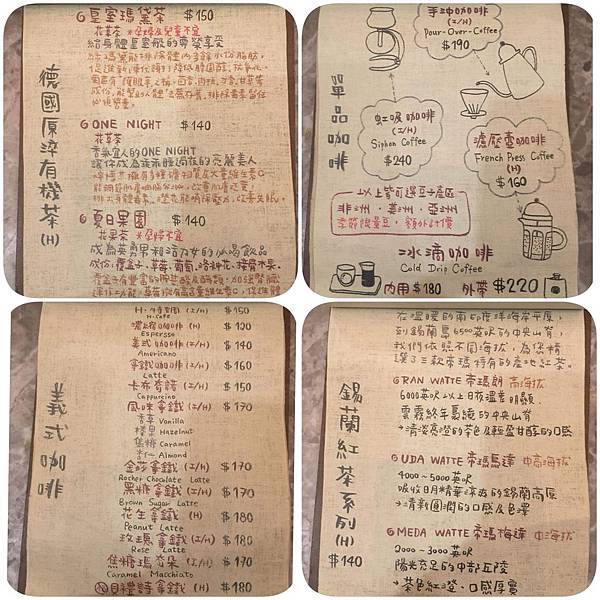 德國原淬有機茶(H)
皇室瑪黛茶 $150
花草茶 *孕婦及兒童不宜
給身體皇室般的尊榮享受
ONE NIGHT $140
花草茶
香氣宜人的ONE NIGHT
夏日果園 $140
花果茶 *孕婦不宜
成為英勇男和活力女的必喝飲品
成份:覆盆子、草莓、葡萄、洛神花、接骨木果。
單品咖啡
手沖咖啡
(I/H)
Pour-Over-Coffee
$190
虹吸咖啡
(I/H)
Siphon Coffee
$240
濾壓壺咖啡
French Press Coffee
(H)
$160
以上皆可選豆子產區
非洲·美洲·亞洲
季節限量豆,額外計價
冰滴咖啡
Cold Drip Coffee
內用$180 外帶$220
義式咖啡
$150
濃縮咖啡(H) $120
Espresso
美式咖啡(I/H) $140
Americano
拿鐵咖啡(I/H) $160
Latte
卡布奇諾(I/H) $150
Cappuccino
風味拿鐵(I/H) $170
香草 Vanilla
榛果 Hazelnut
焦糖 Caramel
杏仁 Almond
金莎拿鐵(I/H) $170
Rocher Chocolate Latte
黑糖拿鐵(I/H) $170
Brown Sugar Latte
花生拿鐵(H) $180
Peanut Latte
玫瑰拿鐵(I/H) $180
Rose Latte
焦糖瑪奇朵(I/H) $170
Caramel Macchiato
貝禮詩拿鐵(H) $180
錫蘭紅茶系列(H)
$140
在溫暖的南印度洋海岸平原,
到錫蘭島6500英呎的中央山脊,
我們依照不同海拔,為您精
選了三款帝瑪特有的產地紅茶。
RAN WATTE 帝瑪朗 高海拔
6000英呎以上日夜溫差明顯,
雲霧終年裊繞的中央山脊
→清淡亮澄的茶色及輕盈甘醇的口感
UDA WATTE 帝瑪烏達 中高海拔
4000~5000英呎
吸收日月精華涼爽的錫蘭高原
→清新圓潤的口感及色澤
MEDA WATTE 帝瑪梅達 中海拔
2000~3000英呎
陽光充足的中部丘陵
→茶色紅澄、口感厚實